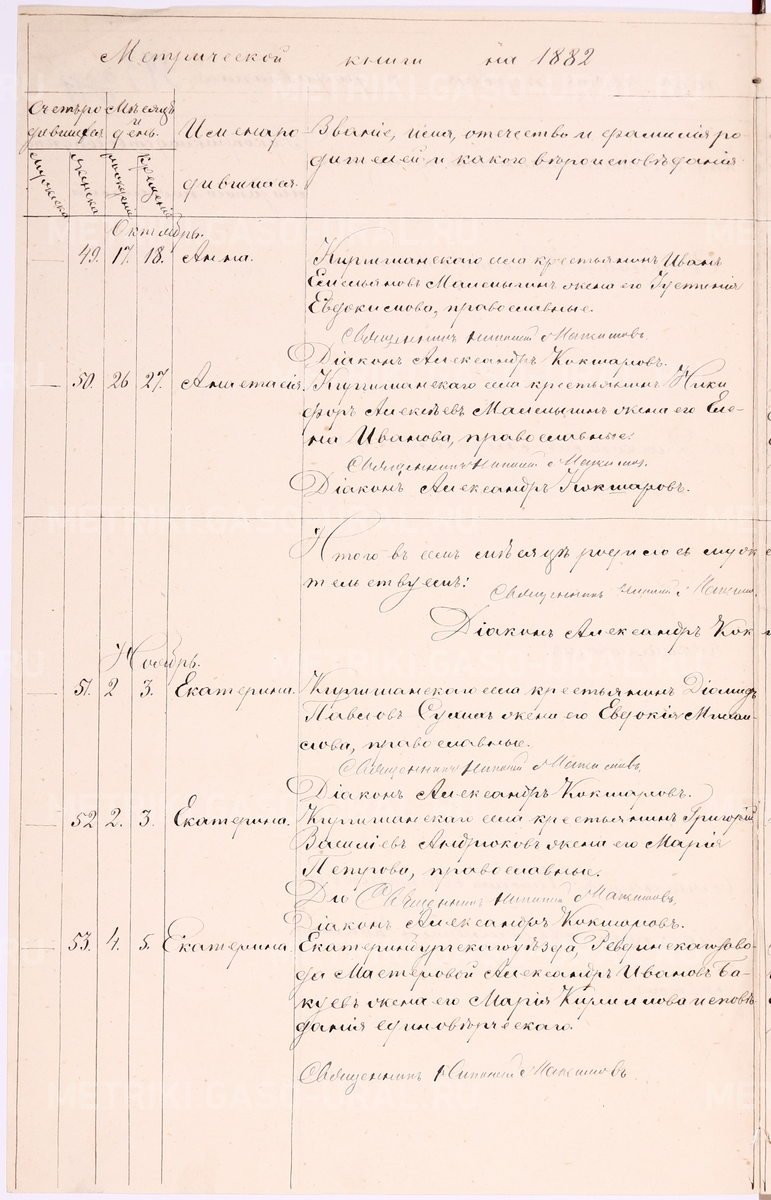 Метрической книги на 1882
Счетъ ро
дившихся
Мѣсяцъ
и
день.
Имена ро
дившихся.
Званіе, имя, отечество и фамилія ро-
дителей и какого вѣроисповѣданія
мужеска
женска
рожденія
крещенія
Октябрь.
49. 17. 18. Анна. Киргишанскаго села крестьянинъ Иванъ
Емельяновъ Мамышинъ жена его Устинія
Евдокимова, православные.
Священникъ Максимовъ.
Діаконъ Александръ Кокшаровъ.
50. 26 27. Анастасія. Киргишанскаго села крестьянинъ Ники
форъ Алексѣевъ Мамышинъ жена его Еле-
на Иванова, православные:
Священникъ Максимов.
Діаконъ Александръ Кокшаровъ.
Итого въ семъ мѣсяцѣ родилось муж
тельствуемъ:
Священникъ Максимо
Діаконъ Александръ Кок
Ноябрь.
51. 2 3. Екатерина. Киргишанскаго села крестьянинъ Діомидъ
Павловъ жена его Евдокія Михаи-
лова, православные.
Священникъ Максимовъ.
Діаконъ Александръ Кокшаровъ.
52 2. 3. Екатерина. Киргишанскаго села крестьянинъ Григорій
Василіевъ Андрюковъ жена его Марія
Петрова, православные.
Діо Священникъ Максимовъ.
Діаконъ Александръ Кокшаровъ.
53. 4. 5. Екатерина. Екатеринбургскаго уѣзда, Ревдинскаго заво-
да Мастеровой Александръ Ивановъ Ба-
куевъ жена его Марія Кирилова исповѣ
данія единовѣрческаго.
Священникъ Максимовъ